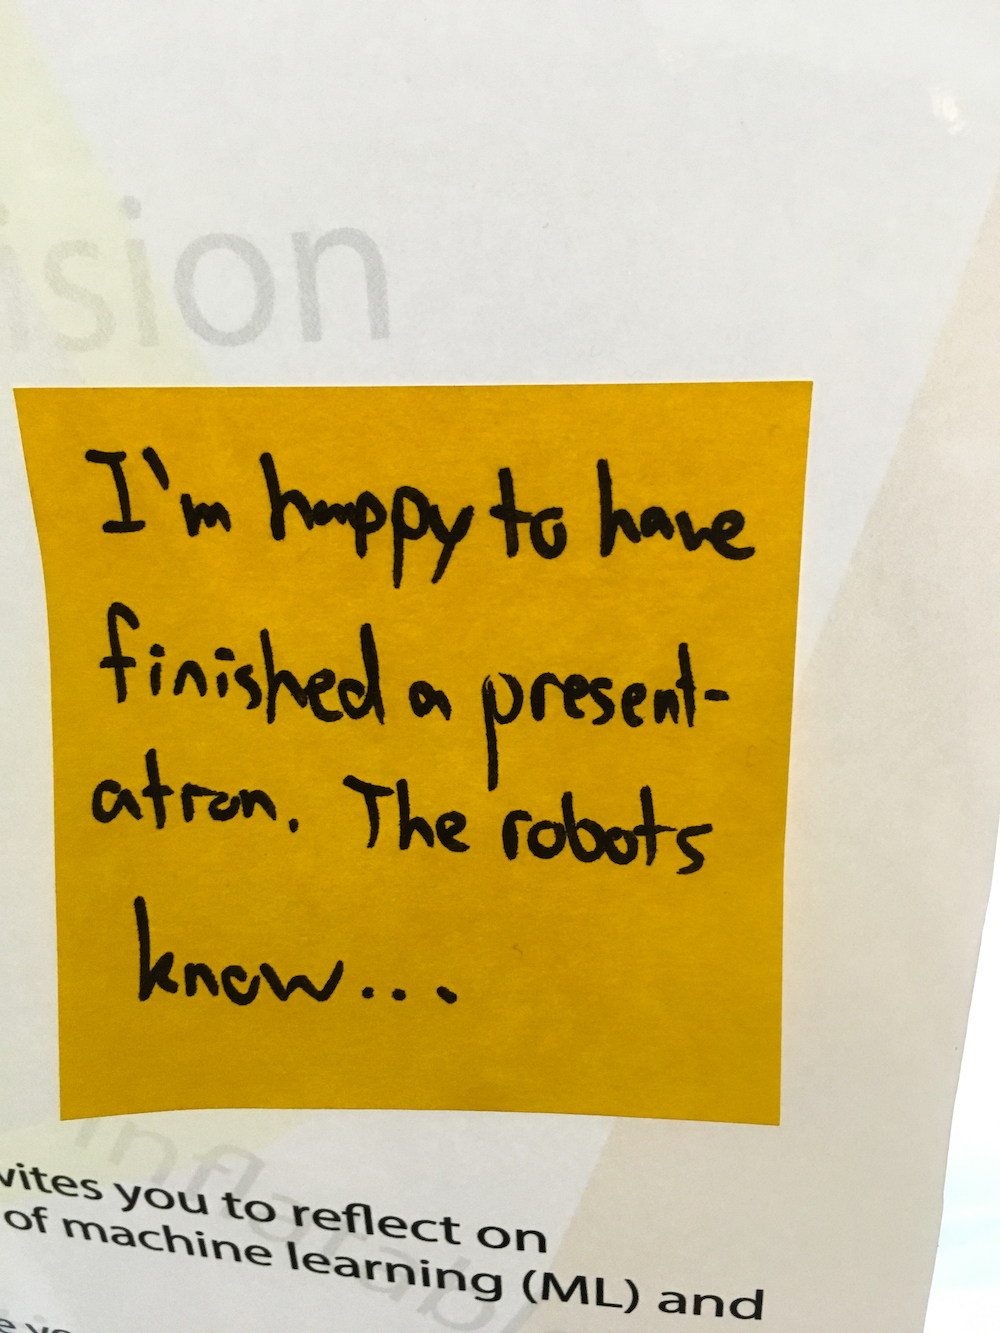 ision
I'm happy to have
finished a present-
ation. The robots
know...
vites you to reflect on
of machine learning (ML) and